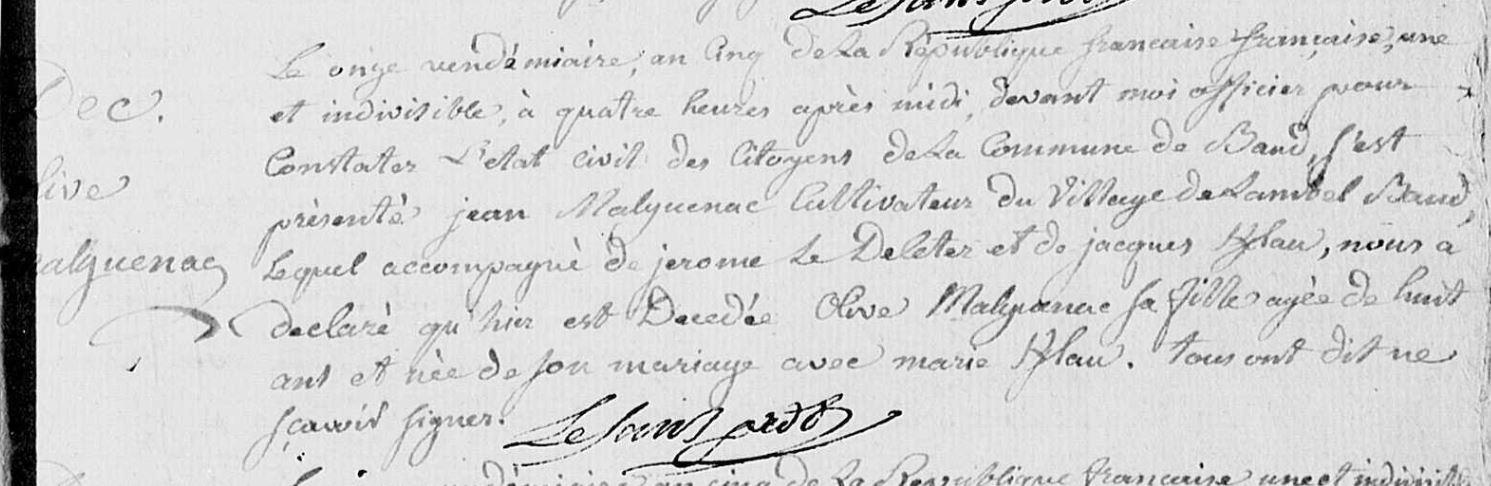 Le onze vendémiaire, an Cinq de La République francaise française, une
Dec. et indivisible, à quatre heures après midi, devant moi officier pour
Constater L'etat civil des Citoyens de La Commune de Baud, s'est
live présenté jean Malguenac Cultivateur du Village de Lambel Baud,
alguenac Lequel accompagné de jerome Le Deleter et de jacques Kslau, nous a
declaré qu'hier est Decedée Olive Malguanac sa fille agée de huit
ans et née de son mariage avec marie Kslau. tous ont dit ne
sçavoir signer.
an cinq de La Republique francaise une et indivisib